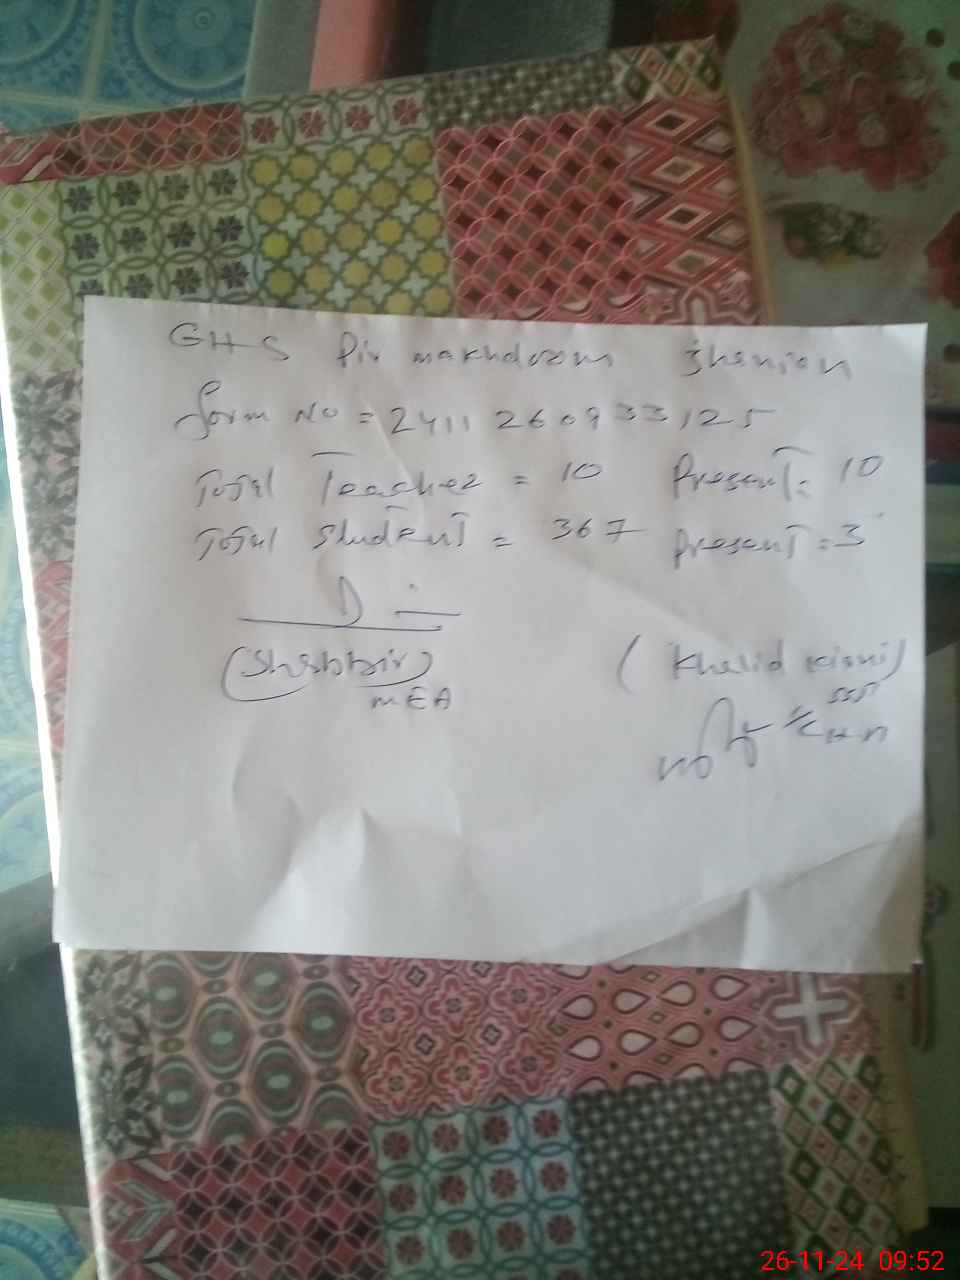 GHS Pir makhdoom Jhanian
form No = 2411260933125
Total Teacher = 10 Present = 10
Total Student = 367 Present = 3
(Shabbir)
MEA
(Khalid
SST
26-11-24 09:52